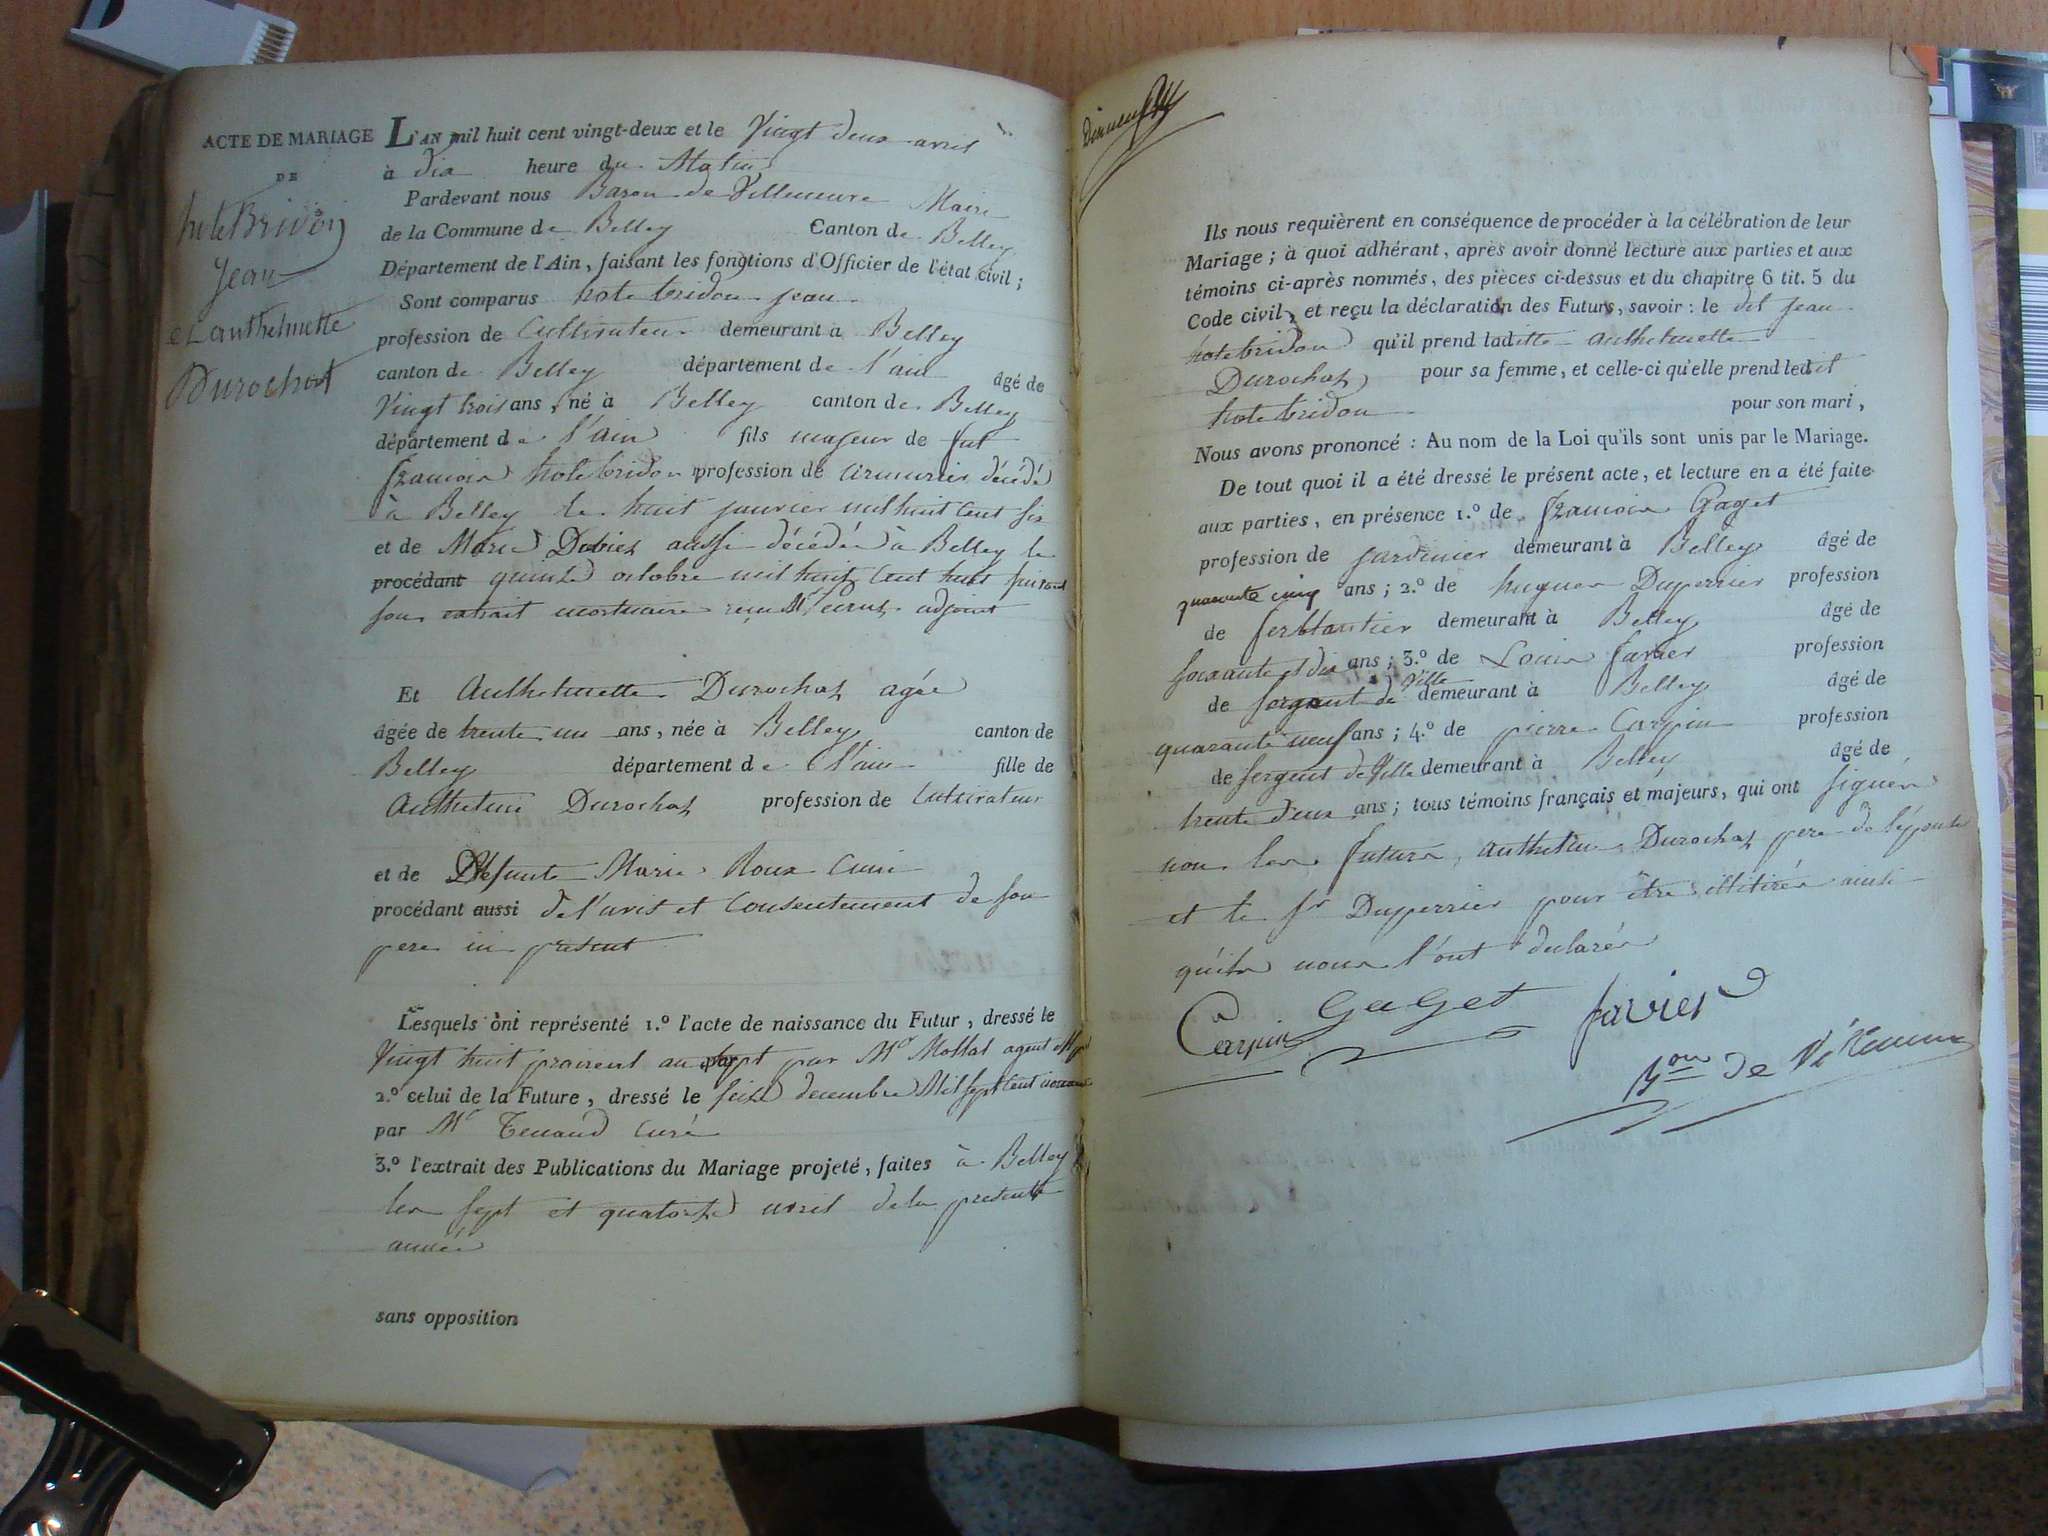 ACTE DE MARIAGE
DE
hote Bridon
Jean
et anthelmette
Durochat
L'AN mil huit cent vingt-deux et le Vingt deux avril
à dix heure du Matin
Pardevant nous Baron de Villeneuve Maire
de la Commune de Belley Canton de Belley
Département de l'Ain, faisant les fonctions d'Officier de l'état civil;
Sont comparus hote bridon jean
profession de Cultivateur demeurant à Belley
canton de Belley département de l'ain âgé de
Vingt trois ans, né à Belley canton de Belley
département de l'ain fils majeur de fut
francois hote bridon profession de armurier décédé
à Belley le huit janvier mil huit cent six
et de Marie Dubiez aussi décédée à Belley le
procédant quinze octobre mil huit cent huit suivant
son extrait mortuaire adjoint
Et Anthelmette Durochat agée
âgée de trente un ans, née à Belley canton de
Belley département de l'ain fille de
Anthelme Durochat profession de Cultivateur
et de Défunte Marie Roux
procédant aussi de l'avis et Consentement de son
pere ici présent
Lesquels ont représenté 1.º l'acte de naissance du Futur, dressé le
Vingt huit prairial an sept par Mr Mollat agent
2.º celui de la Future, dressé le seize decembre Mil sept cent
par Mr Tenand Curé
3.º l'extrait des Publications du Mariage projeté, faites à Belley
les sept et quatorze avril de la présente
année
sans opposition
Ils nous requièrent en conséquence de procéder à la célébration de leur
Mariage; à quoi adhérant, après avoir donné lecture aux parties et aux
témoins ci-après nommés, des pièces ci-dessus et du chapitre 6 tit. 5 du
Code civil, et reçu la déclaration des Futurs, savoir: le dit jean
hote bridon qu'il prend laditte anthelmette
Durochat pour sa femme, et celle-ci qu'elle prend ledit
hote bridon pour son mari,
Nous avons prononcé: Au nom de la Loi qu'ils sont unis par le Mariage.
De tout quoi il a été dressé le présent acte, et lecture en a été faite
aux parties, en présence 1.º de francois Gaget
profession de jardinier demeurant à Belley âgé de
quarante cinq ans; 2.º de hugues Duperrier profession
de ferblantier demeurant à Belley âgé de
soixante et dix ans; 3.º de Louis favier profession
de sergent de ville demeurant à Belley âgé de
quarante neuf ans; 4.º de pierre Carpin profession
de sergent de Ville demeurant à Belley âgé de
trente deux ans; tous témoins français et majeurs, qui ont signés
non les futurs, anthelme Durochat pere de l'épouse
et le sr Duperrier pour être illitérés ainsi
qu'ils nous l'ont déclarés
Carpin Gaget favier
Bon de Villeneuve